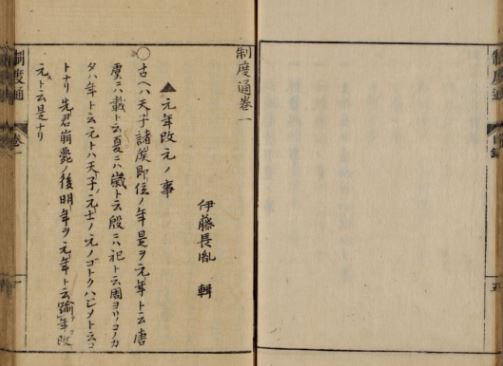 制度通卷一
伊藤長胤 輯
▲元年改元ノ事
〇古ヘハ天子諸侯即位ノ年是ヲ元年ト云唐
虞ニハ載ト云夏ニハ歳ト云殷ニハ祀ト云周ヨリコノカ
タハ年ト云元トハ天子ノ元士ノ元ノゴトクハジメト云コ
トナリ先君崩薨ノ後明年ヲ元年ト云踰年改
元ト云是ナリ
制度通 卷一